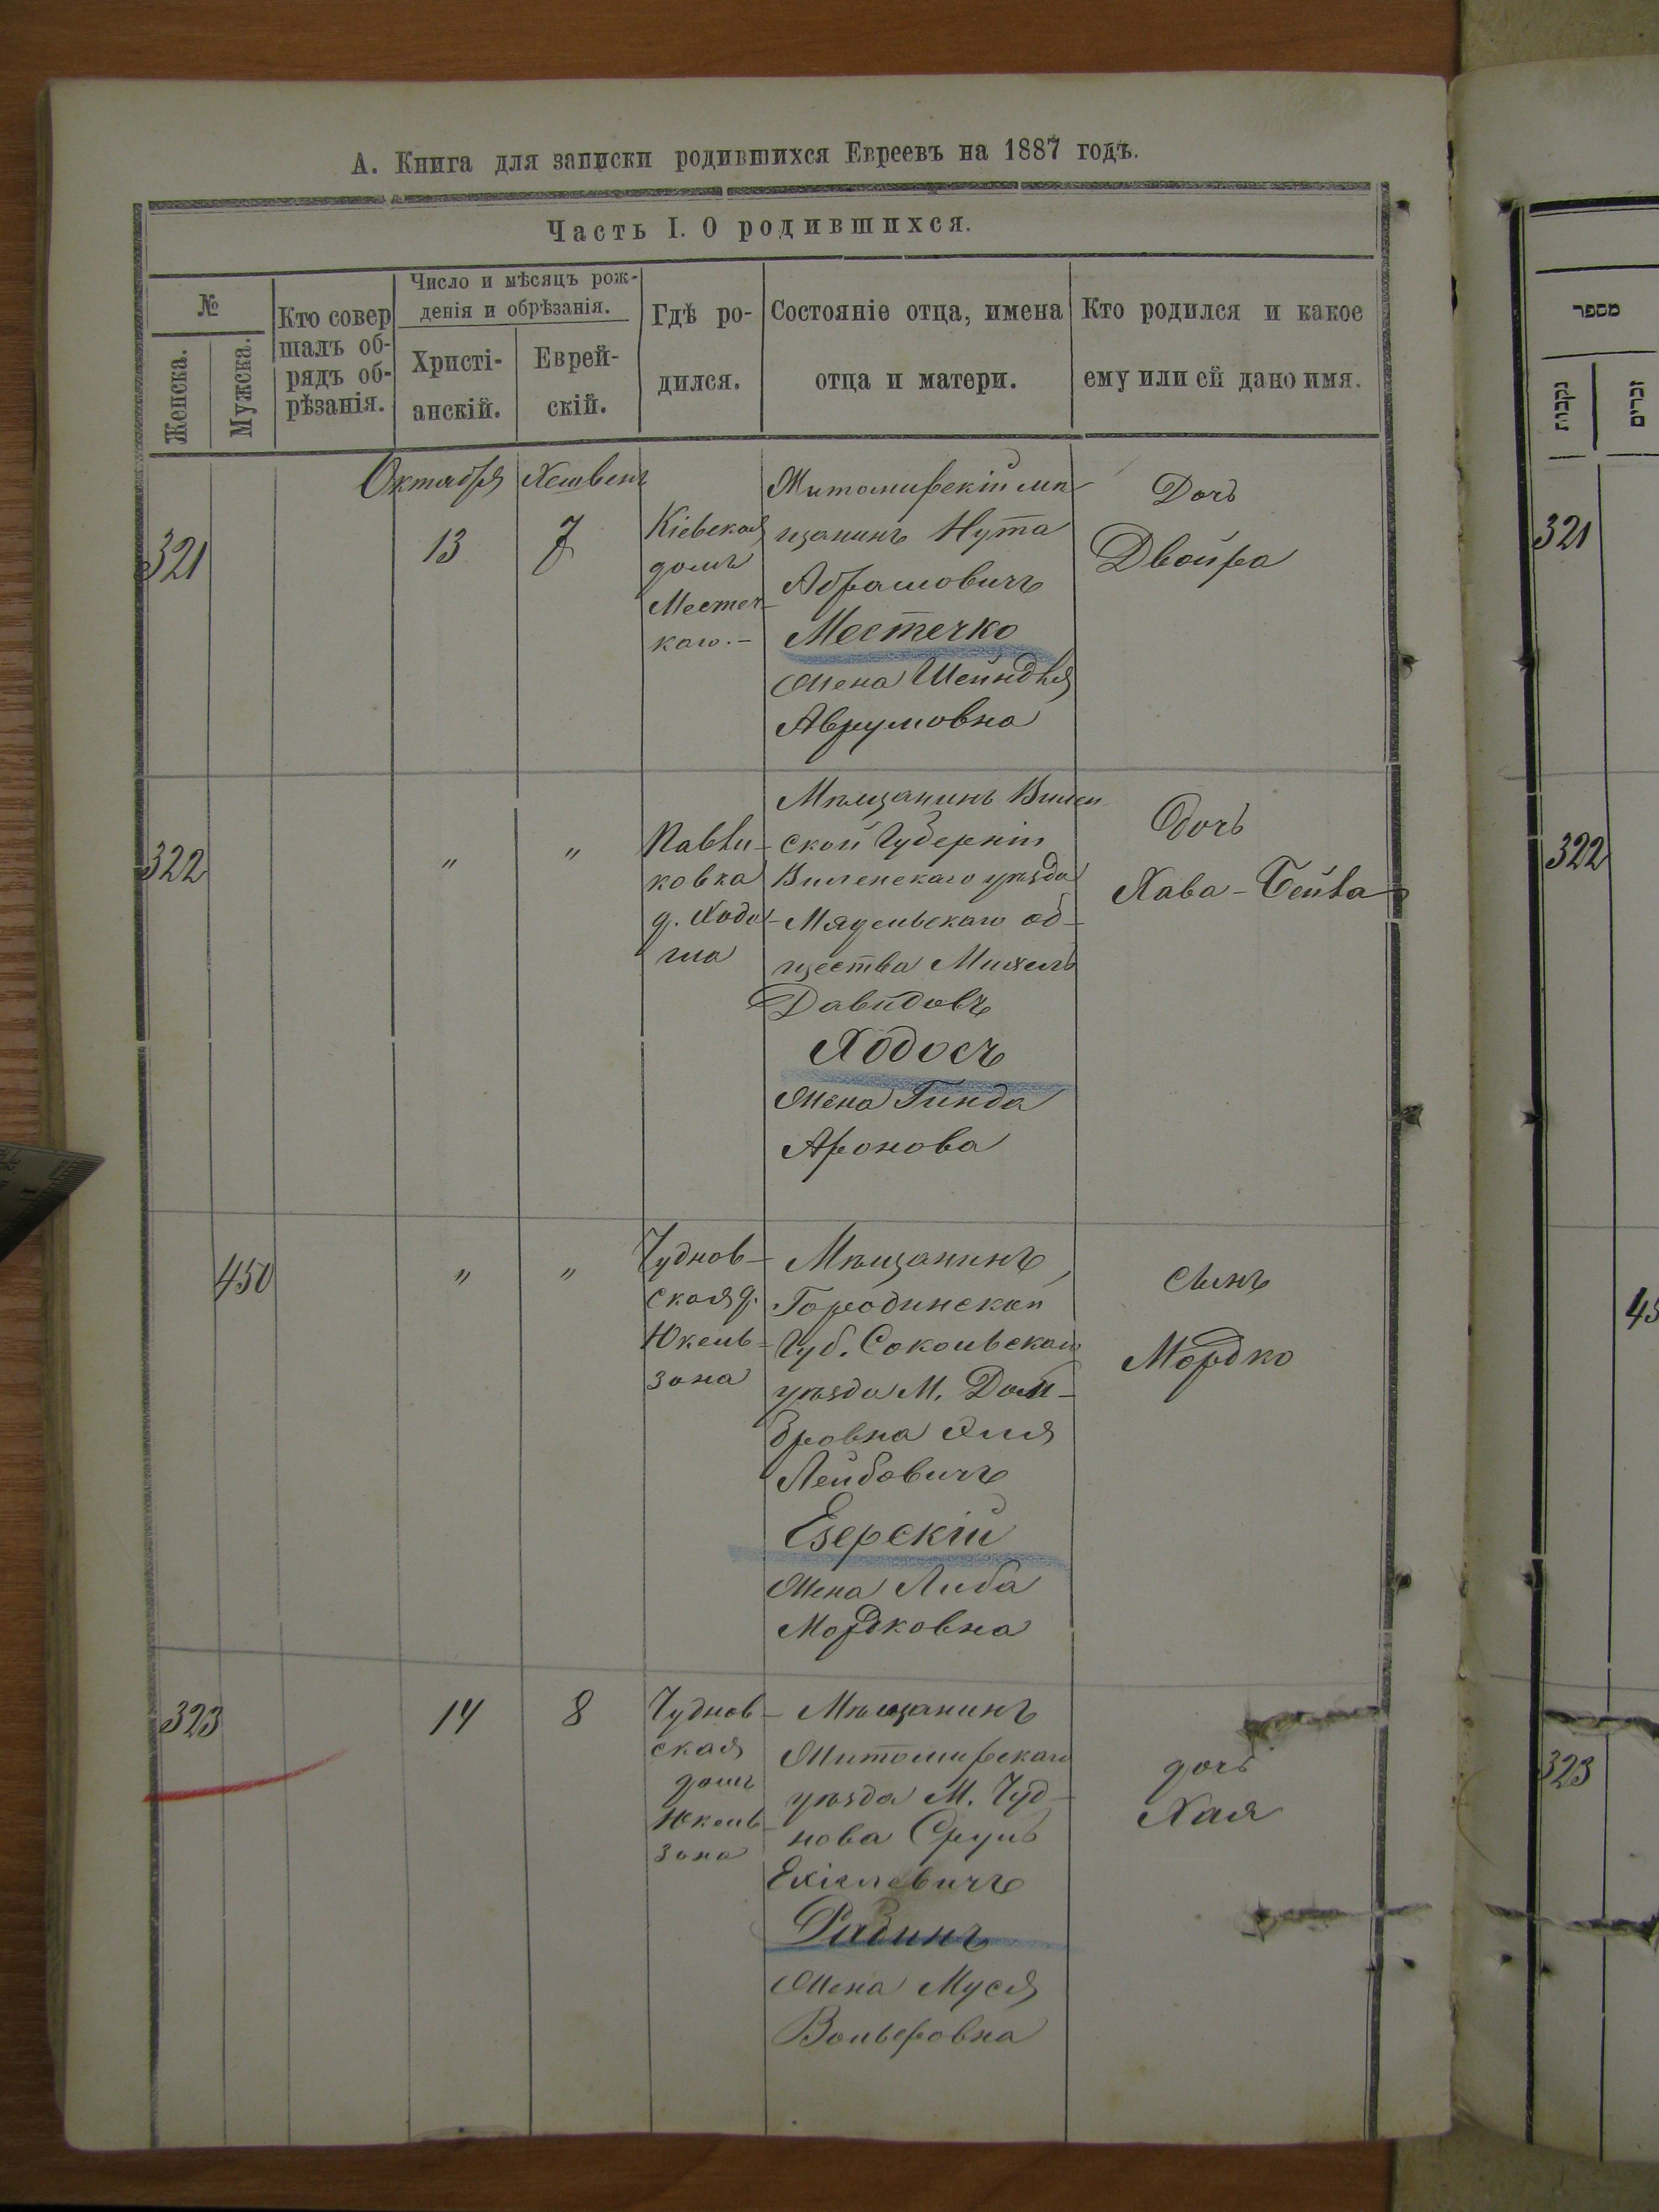 А. Книга для записки родившихся Евреевъ на 1887 годъ.
Часть I. О родившихся.
№
Женска.
Мужска.
Кто совер
шалъ об-
рядъ об-
рѣзанія.
Число и мѣсяцъ рож-
денія и обрѣзанія.
Христі-
анскій.
Еврей-
скій.
Гдѣ ро-
дился.
Состояніе отца, имена
отца и матери.
Кто родился и какое
ему или ей дано имя.
Октября
Хешвенъ
321
13
7
Кіевская
домъ
Местеч-
каго.-
Житомирскій мѣ-
щанинъ Нута
Абрамовичъ
Местечко
Жена Шейндля
Аврумовна
Дочь
Двойра
322
"
"
Павли-
ковка
д. Ходо-
ша
Мѣщанинъ Вилен-
ской Губерніи
Виленскаго уѣзда
Мядельскаго об-
щества Михель
Давидовъ
Ходосъ
Жена Гинда
Аронова
Дочь
Хава-Бейла
450
"
"
Чуднов-
ская д.
Юкель-
зона
Мѣщанинъ
Городинской
Губ. Сокольскаго
уѣзда М. Дом-
бровна Эля
Лейбовичъ
Езерскій
Жена Либа
Мордковна
сынъ
Мордко
323
14
8
Чуднов-
ская
домъ
Юкель-
зона
Мѣщанинъ
Житомирскаго
уѣзда М. Чуд-
нова Сруль
Ехіелевичъ
Радинъ
Жена Муся
Вольфовна
дочь
Хая
מספר
נקבות
זכרים
321
322
45
323